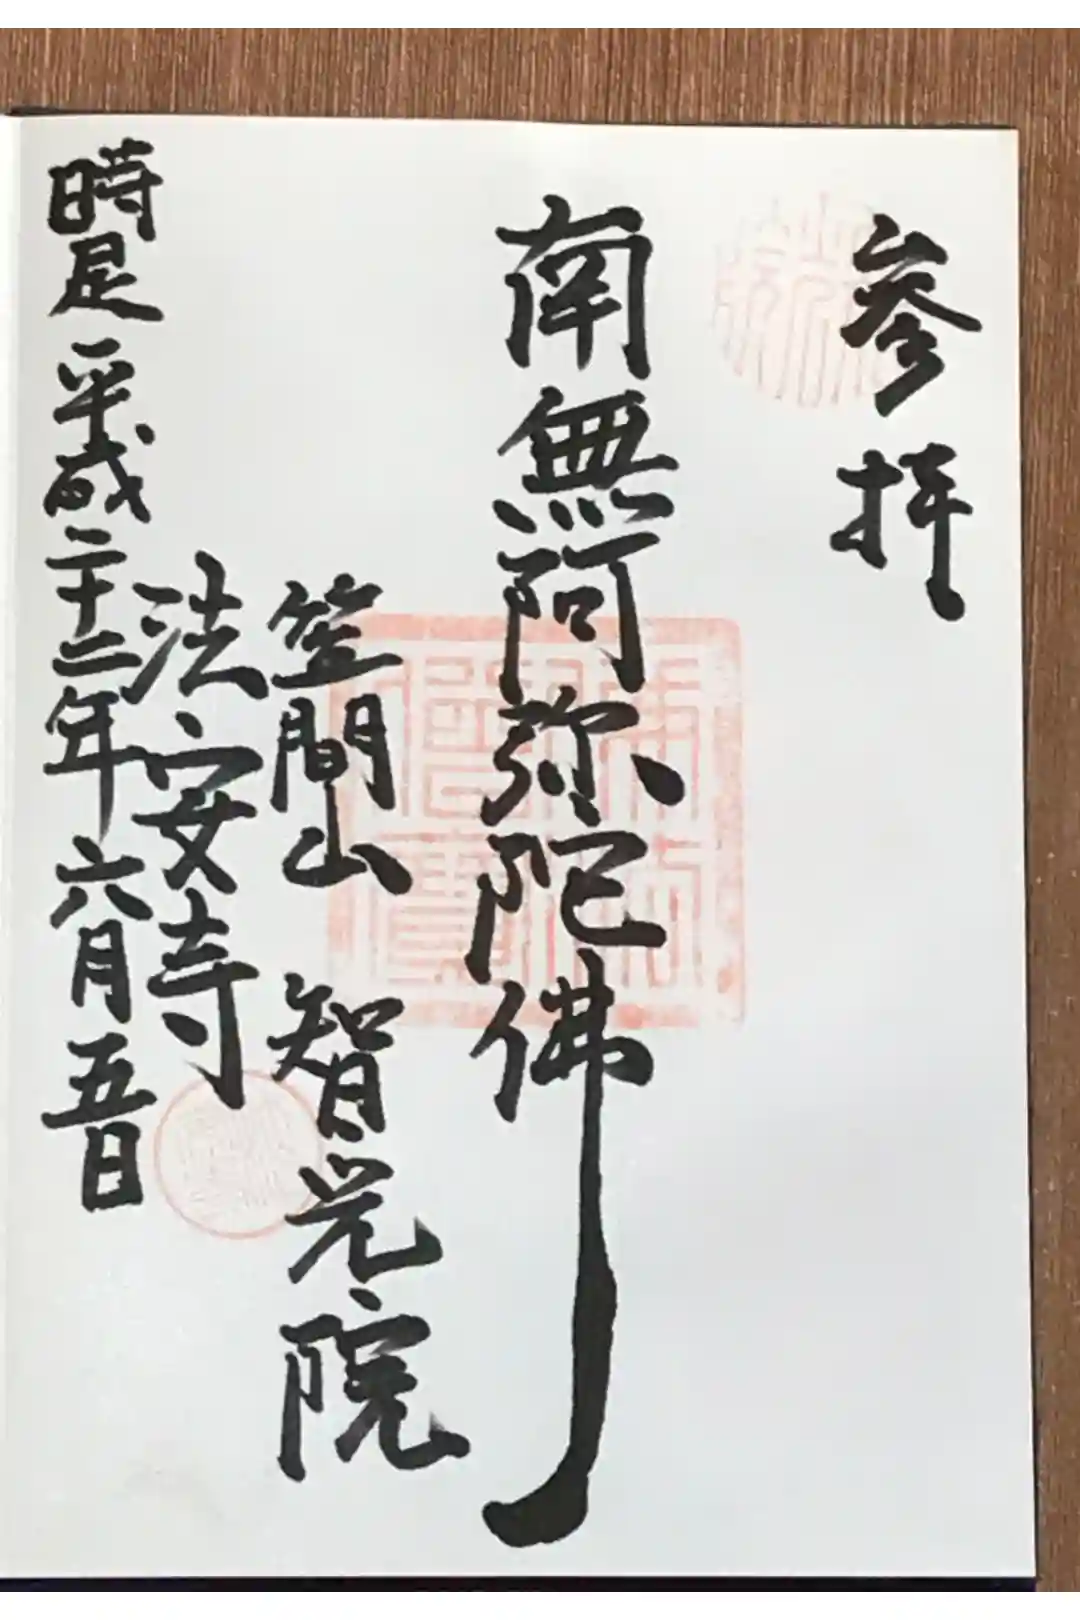 參拝
南無阿弥陀佛
笠間山 智光院
法安寺
時是平成二十二年六月五日